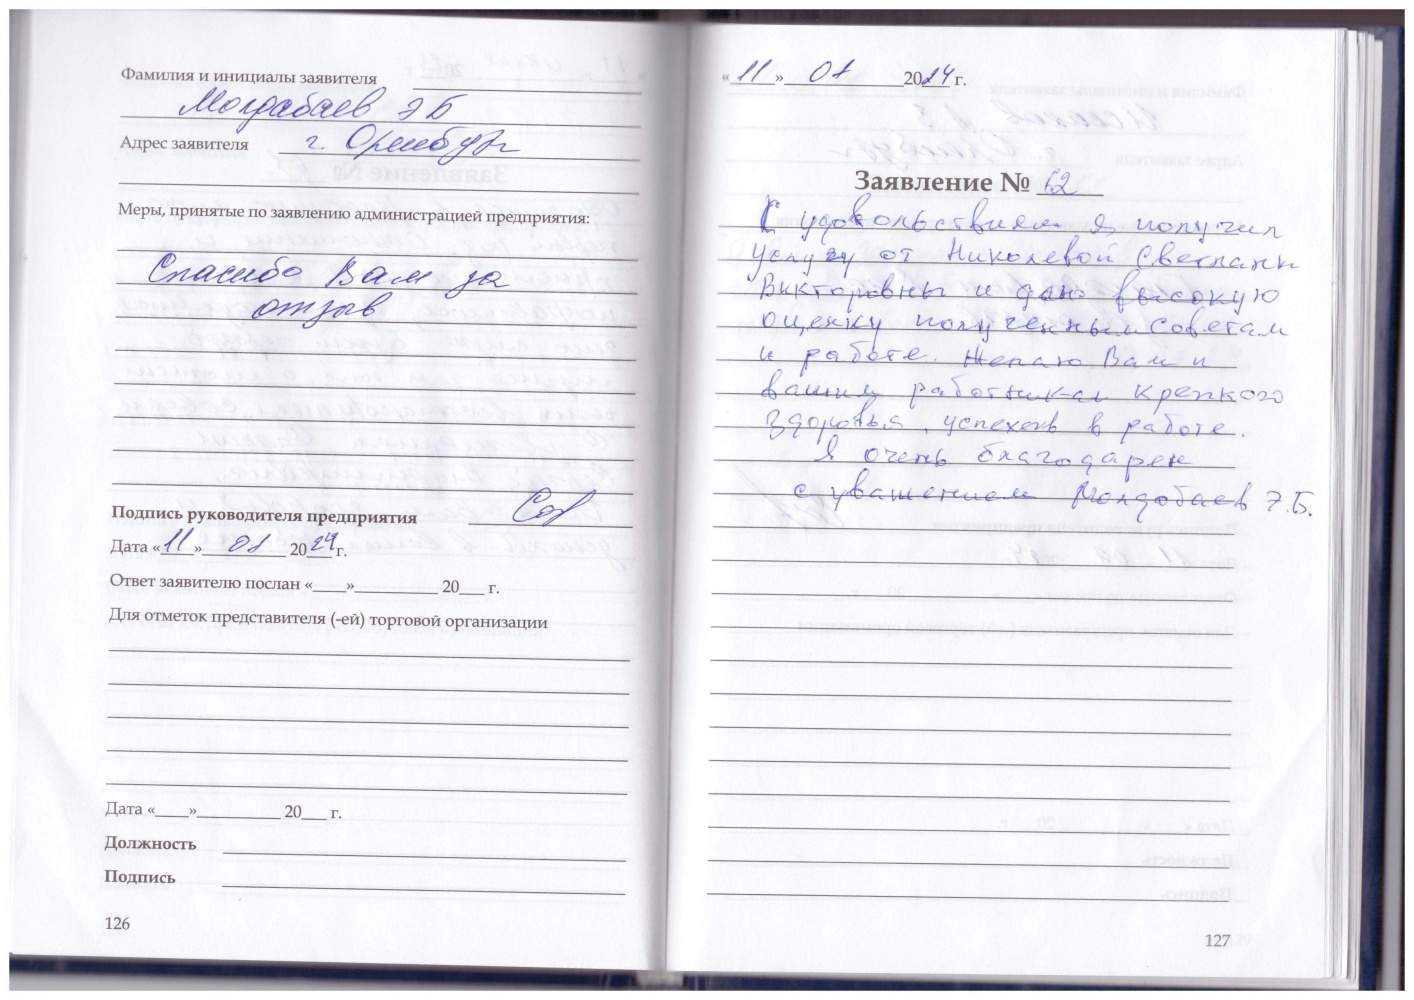 Фамилия и инициалы заявителя
Молдабаев Э Б
Адрес заявителя г. Оренбург
Меры, принятые по заявлению администрацией предприятия:
Спасибо Вам за
отзыв
Подпись руководителя предприятия
Дата «11» 01 2024 г.
Ответ заявителю послан «____»__________ 20___ г.
Для отметок представителя (-ей) торговой организации
Дата «____»__________ 20___ г.
Должность
Подпись
126
«11» 01 2024 г.
Заявление № 62
С удовольствием я получил
услугу от Николевой Светланы
Викторовны и даю высокую
оценку полученным советам
и работе. Желаю Вам и
вашим работникам крепкого
здоровья, успехов в работе.
Я очень благодарен
с уважением Молдобаев Э.Б.
127